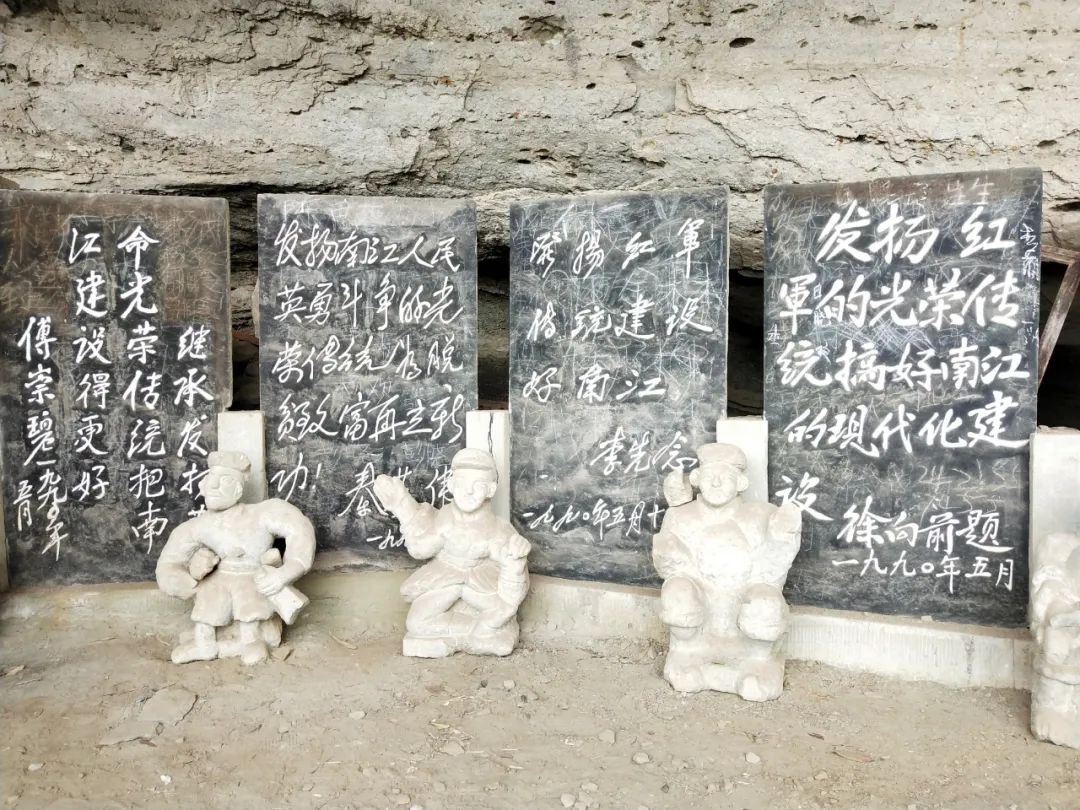 继承发扬
命光荣传统把南
江建设得更好
傅崇碧一九九〇年
五月
发扬南江人民
英勇斗争的光
荣传统为脱
贫致富再立新
功！
秦基伟
一九
發揚红軍
传统建设
好南江。
李先念
一九九〇年五月十
发扬红
軍的光荣传
统搞好南江
的现代化建
设
徐向前题
一九九〇年五月